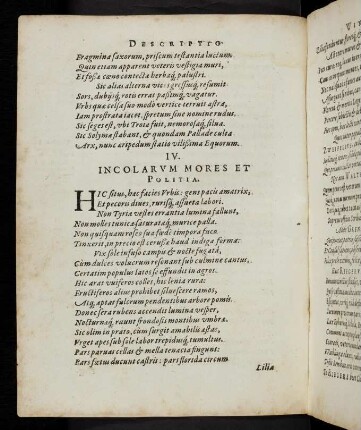 DESCRIPTIO.
Fragmina saxorum, priscum testantia luctum.
Quin etiam apparent veteris vestigia muri,
Et fossa cœno contecta herbaq; palustri.
Sic alias alterna vices
resumit
Sors, dubijsq; rotis errat passimq; vagatur.
Vrbs quæ celsa suo modò vertice terruit astra,
Iam prostrata iacet, spretum sine nomine rudus.
Sic seges est, vbi Troia fuit, nemorosaq; silua.
Sic Solyma stabant, & quondam Pallade culta
Arx, nunc aripedum statio vilissima Equorum.
IV.
INCOLARVM MORES ET
POLITIA.
HIC situs, hæc facies Vrbis: gens pacis amatrix,
Et pecoris diues, rurisq; assueta labori.
Non Tyria vestes errantia lumina fallunt,
Non molles tunica saturataq; murice palla.
Non quisquam roseo sua fœdè tempora fuco
Tinxerit, in precio est cerussa haud indiga forma:
Vix sole infuso campis & nocte fugata,
Cùm dulces volucrum resonant sub culmine cantus,
Certatim populus latos se effundit in agros.
Hic aras viuiferos colles, his lenia rura:
Fructiferos alius prohibet siluescere ramos,
Atq; aptat fulcrum pendentibus arbore pomis.
Donec sera rubens accendit lumina vesper,
Nocturnæq; ruunt frondosis montibus vmbræ.
Sic olim in prato, cùm surgit amabilis æstas,
Vrget apes sub sole labor trepidusq; tumultus.
Pars paruas cellas & mella tenacia fingunt:
Pars fœtus ducunt castris: pars florida circum
Lilia